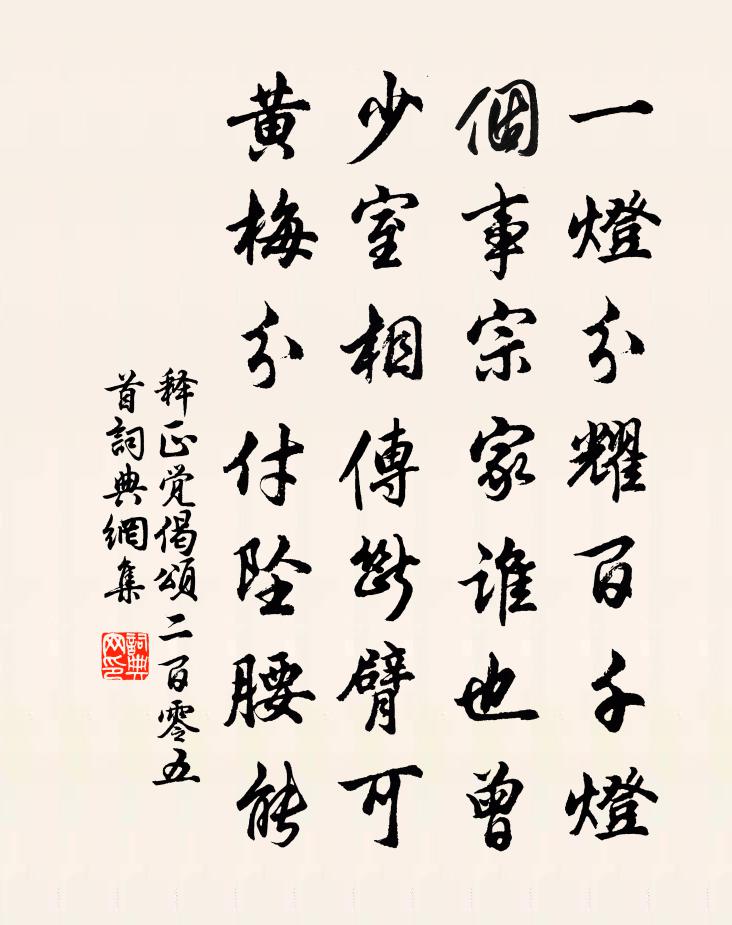 一燈分耀百千燈
個事宗家誰也曾
少室相傳斷臂可
黃梅分付墜腰能
释正觉偈頌二百零五
首詞典網集
詞典
网印